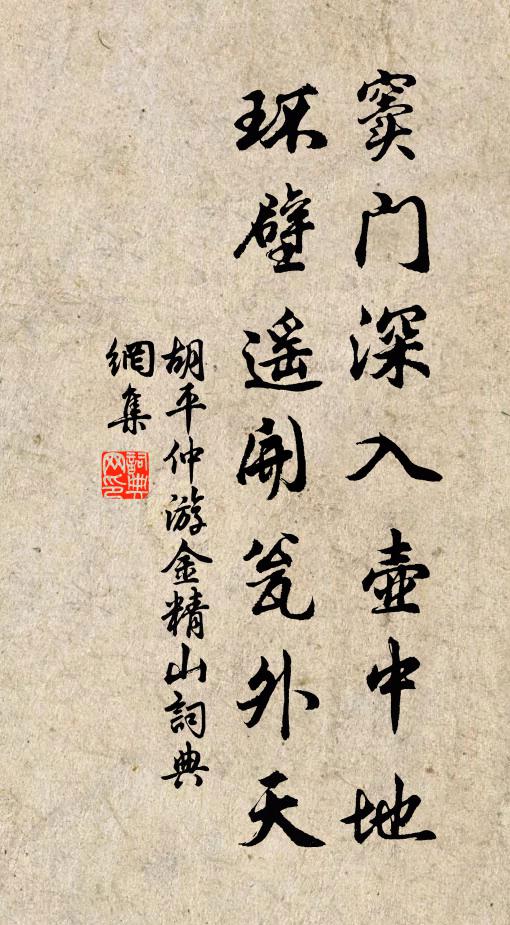 窦门深入壺中地
环壁遥開瓮外天
胡平仲游金精山詞典
網集
詞典
网印